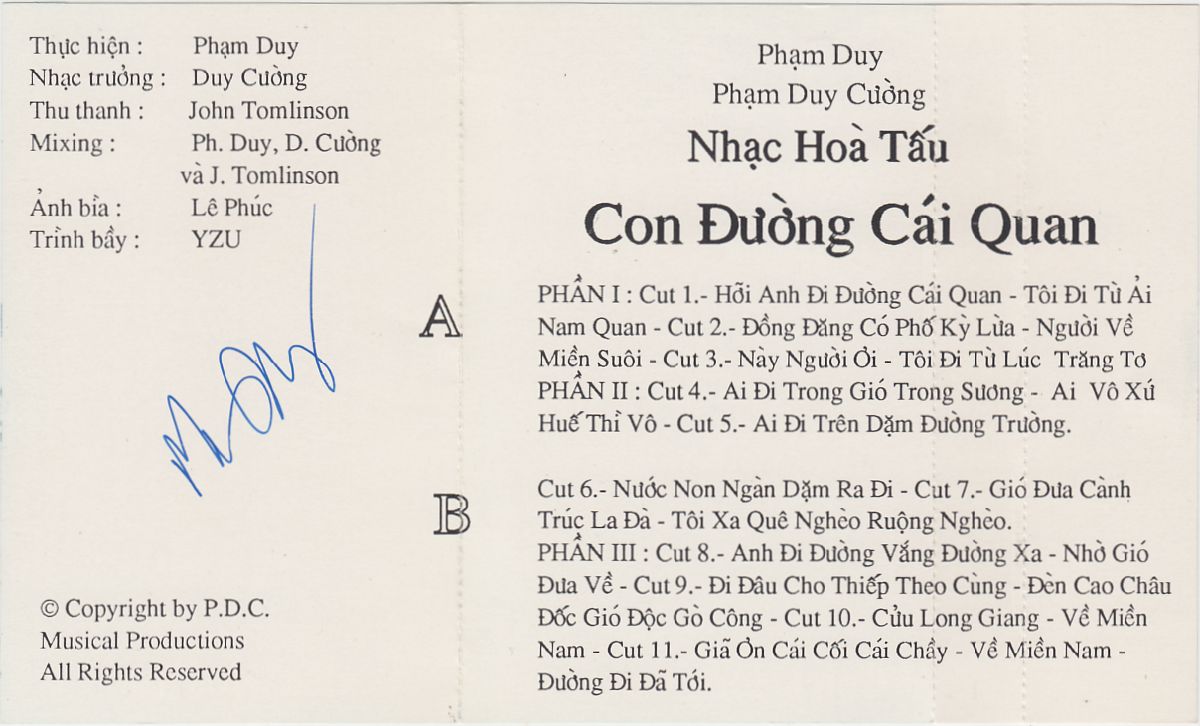 Thực hiện : Phạm Duy
Nhạc trưởng : Duy Cường
Thu thanh : John Tomlinson
Mixing : Ph. Duy, D. Cường
và J. Tomlinson
Ảnh bìa : Lê Phúc
Trình bầy : YZU
© Copyright by P.D.C.
Musical Productions
All Rights Reserved
Phạm Duy
Phạm Duy Cường
Nhạc Hoà Tấu
Con Đường Cái Quan
A
PHẦN I : Cut 1.- Hỡi Anh Đi Đường Cái Quan - Tôi Đi Từ Ải
Nam Quan - Cut 2.- Đồng Đăng Có Phố Kỳ Lừa - Người Về
Miền Suôi - Cut 3.- Này Người Ơi - Tôi Đi Từ Lúc Trăng Tơ
PHẦN II : Cut 4.- Ai Đi Trong Gió Trong Sương - Ai Vô Xứ
Huế Thì Vô - Cut 5.- Ai Đi Trên Dặm Đường Trường.
B
Cut 6.- Nước Non Ngàn Dặm Ra Đi - Cut 7.- Gió Đưa Cành
Trúc La Đà - Tôi Xa Quê Nghèo Ruộng Nghèo.
PHẦN III : Cut 8.- Anh Đi Đường Vắng Đường Xa - Nhờ Gió
Đưa Về - Cut 9.- Đi Đâu Cho Thiếp Theo Cùng - Đèn Cao Châu
Đốc Gió Độc Gò Công - Cut 10.- Cửu Long Giang - Về Miền
Nam - Cut 11.- Giã Ơn Cái Cối Cái Chầy - Về Miền Nam -
Đường Đi Đã Tới.